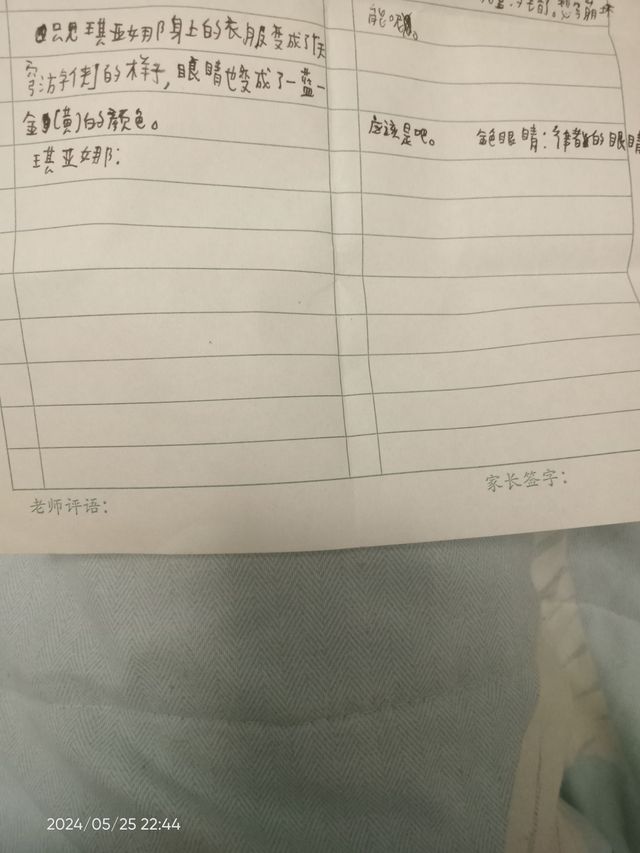 只见琪亚娜身上的衣服变成了
的样子，眼睛也变成了一蓝一
金(黄)的颜色。
琪亚娜：
能
应该是吧。 金色眼睛：律者的眼睛
老师评语：
家长签字：
2024/05/25 22:44